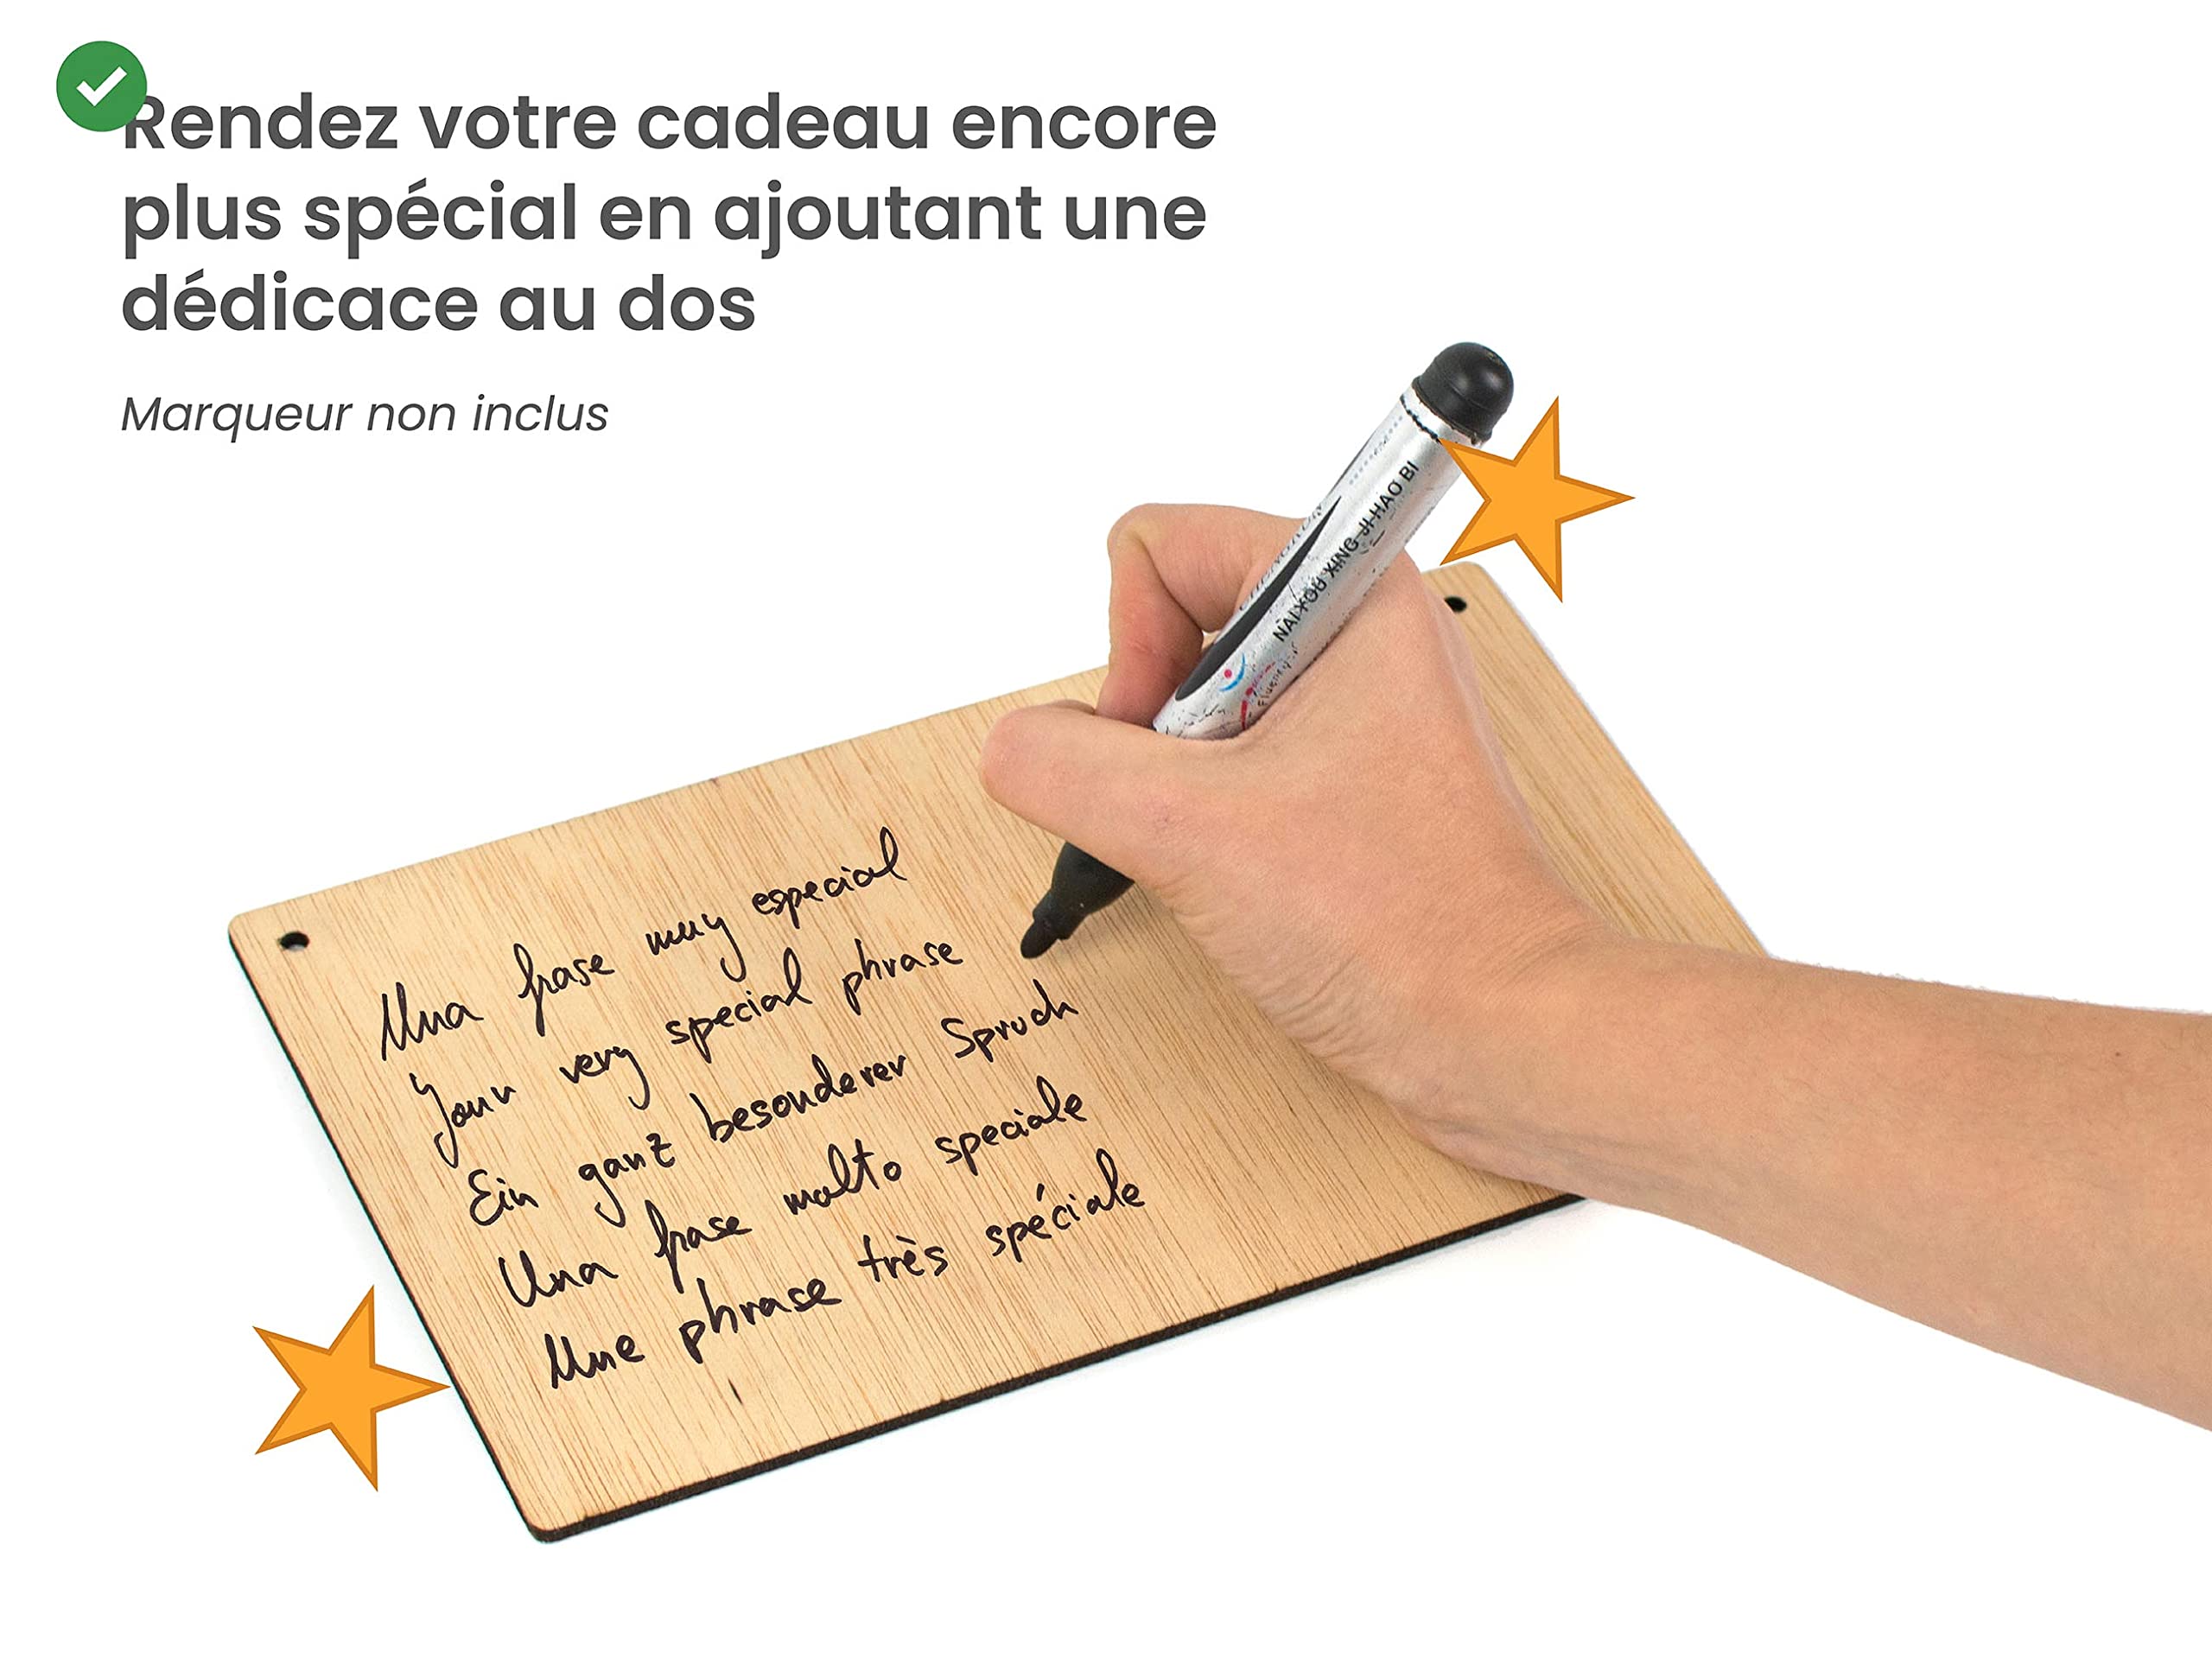 Rendez votre cadeau encore
plus spécial en ajoutant une
dédicace au dos
Marqueur non inclus
NAI YOU XING JI HAO BI
Una frase muy especial
Your very special phrase
Ein ganz besonderer Spruch
Una frase molto speciale
Une phrase très spéciale